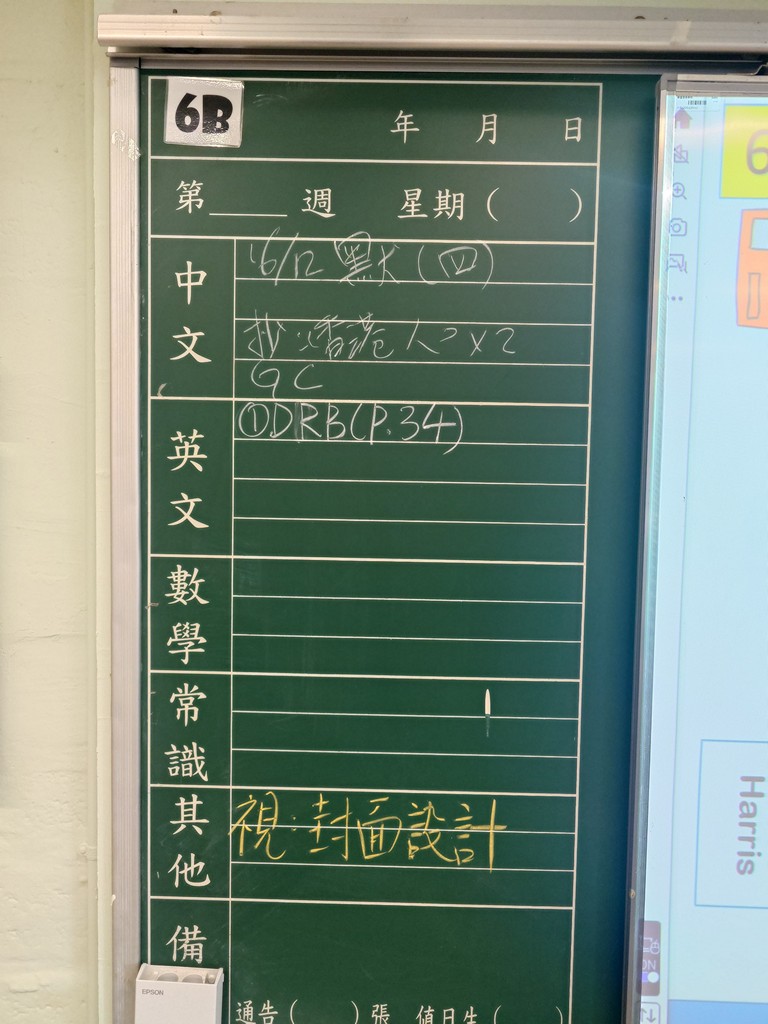 6B
年 月 日
第____週 星期( )
中文
16/12 默(四)
抄:香港人 2x2
GC
英文
①DRB(P.34)
數學
常識
其他
視:封面設計
備
通告( )張 值日生( )
EPSON
6
Harris
ON